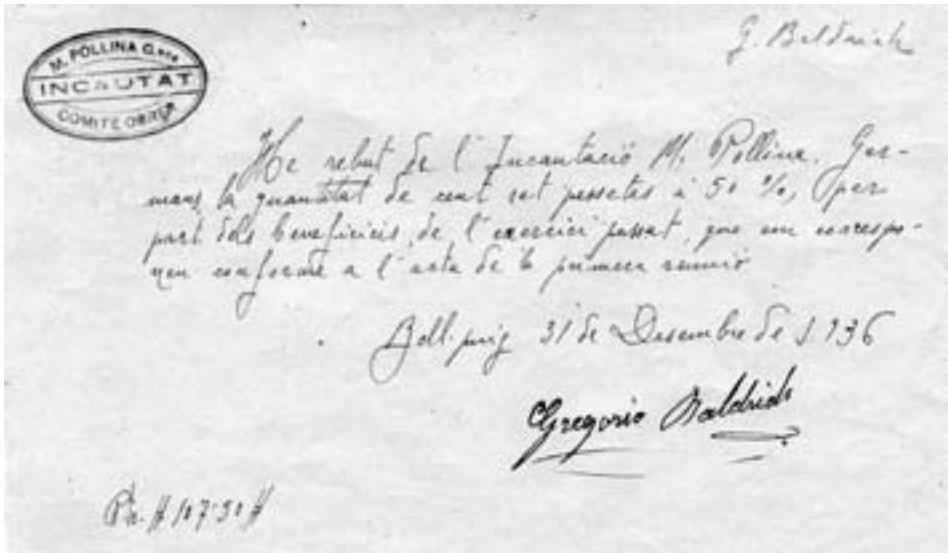 G. Beldrich
M. POLLINA G.ans
INCAUTAT
COMITÉ OBRER
He rebut de l'Incautació M. Pollina. Ger-
mans, la quantitat de cent set pessetes i 50 %, per
part dels beneficicis, de l'exercici passat, que em correspo-
nen conforme a l'acta de la primera reunió
Bell-puig 31 de Desembre de 1936
Gregorio Baldrich